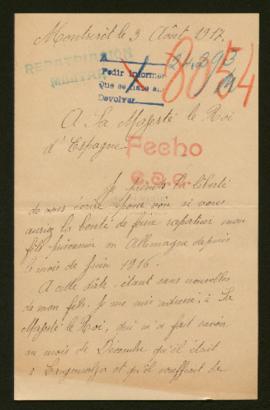 Montzéville 3 Août 1917.
REPATRIACIÓN
MILITAR
Pedir informes
Que se trate su
Devolver
24.293
8054
A Sa Majesté le Roi
d'Espagne
Fecho
Je prends la liberté
de vous écrire pour voir si vous
auriez la bonté de faire rapatrier mon
fils prisonnier en Allemagne depuis
le mois de Juin 1916.
A cette date, étant sans nouvelles
de mon fils, Je me suis adressé à Sa
Majesté le Roi, qui m'a fait savoir
au mois de Décembre qu'il était
à et qu'il souffrait de